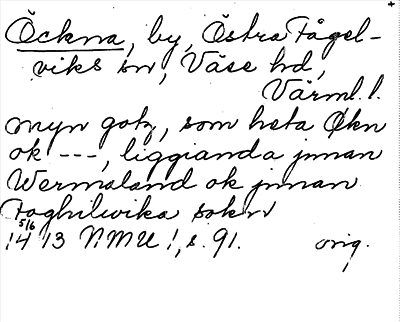 Öckna, by, Östra Fågel-
viks sn, Väse hd,
Värml. l.
myn gotz, som heta Økn
ok ---, liggianda jnnan
Wermaland ok jnnan
Foghilwika sokn
5/6
1413 NMU 1, s. 91. orig.